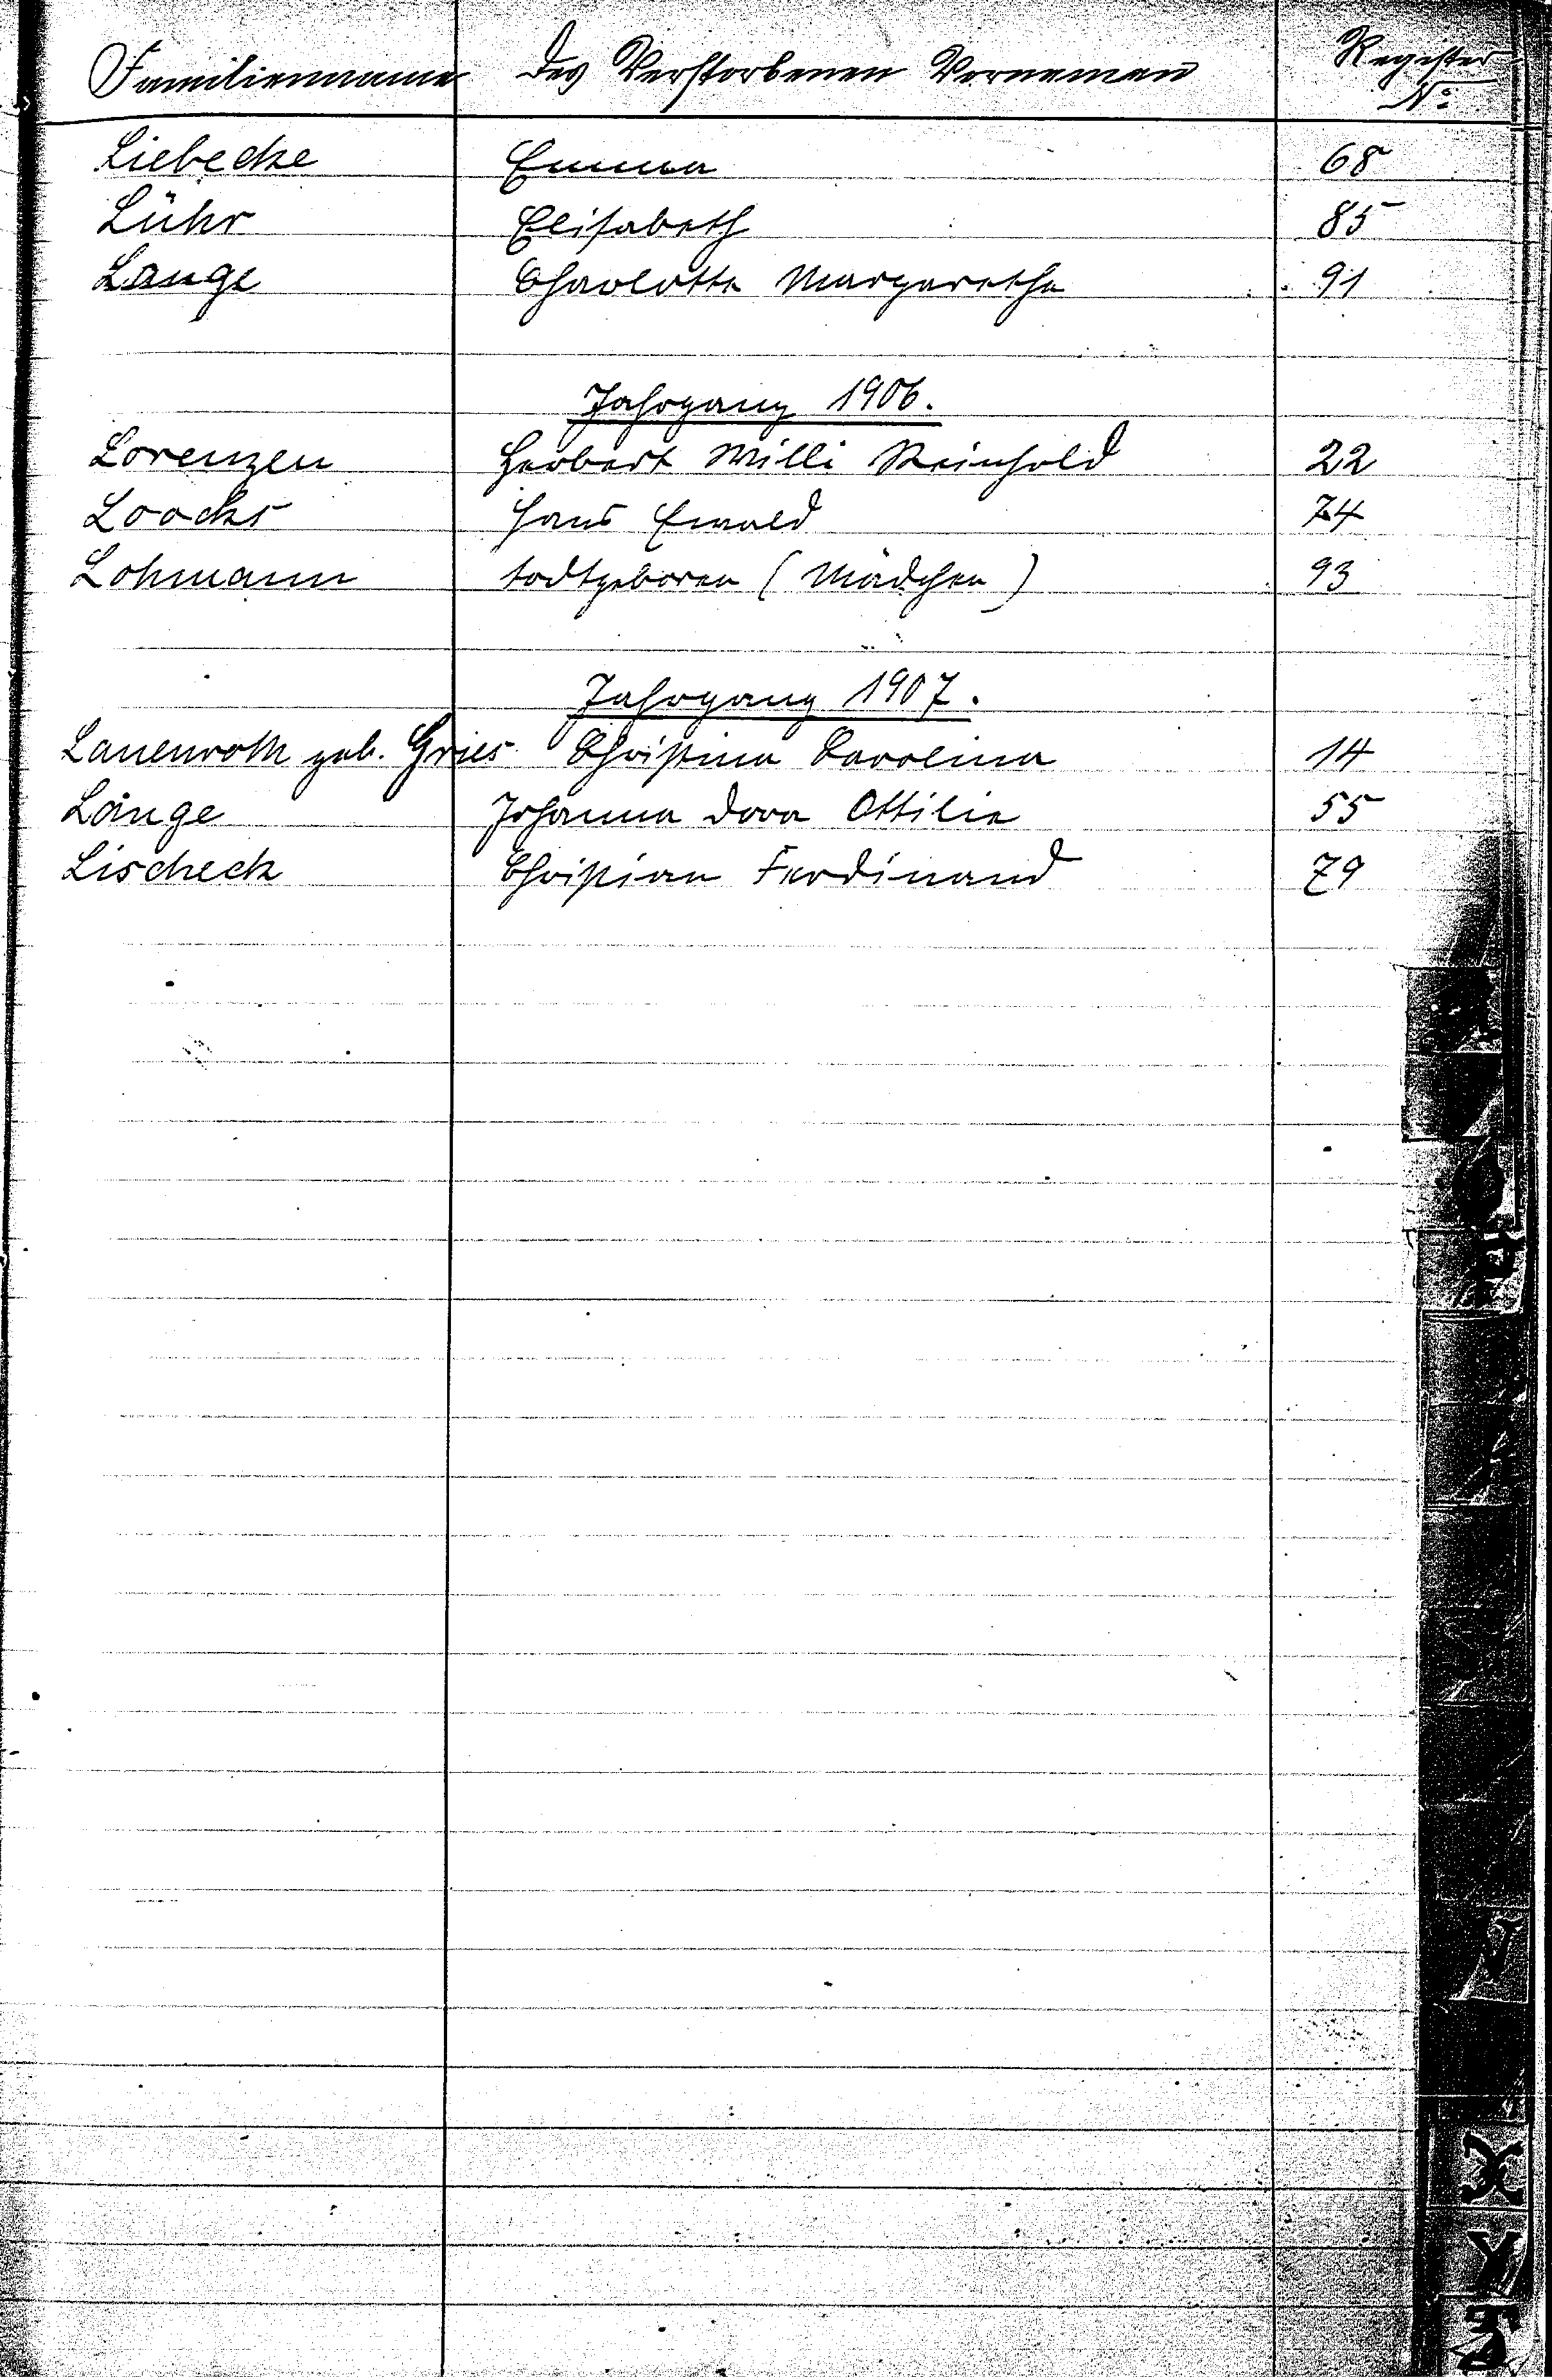 Familienname des Verstorbenen Vornamen Register
No
Liebecke Emma 68
Lühr Elisabeth 85
Lange Charlotte Margarethe 91
Jahrgang 1906.
Lorenzen Herbert Willi Reinhold 22
Loocks Hans Ewald 74
Lohmann todtgeboren (Mädchen) 93
Jahrgang 1907.
Lauenroth geb. Gries Christina Carolina 14
Lange Johanna Dora Ottilie 55
Lischeck Christian Ferdinand 79
X
Y
Z